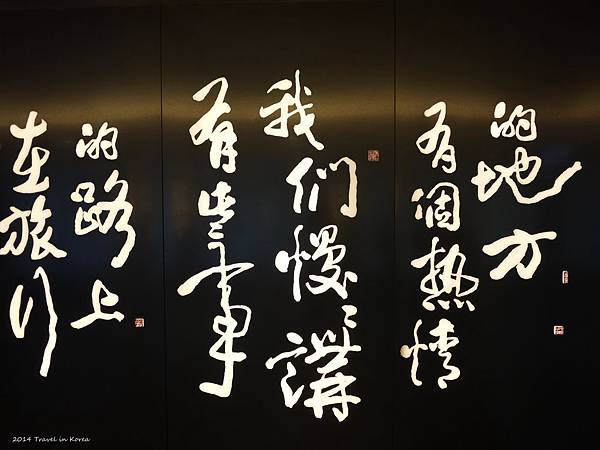 在旅行
的路上
有些事
我們慢慢講
有個熱情
的地方
2014 Travel in Korea